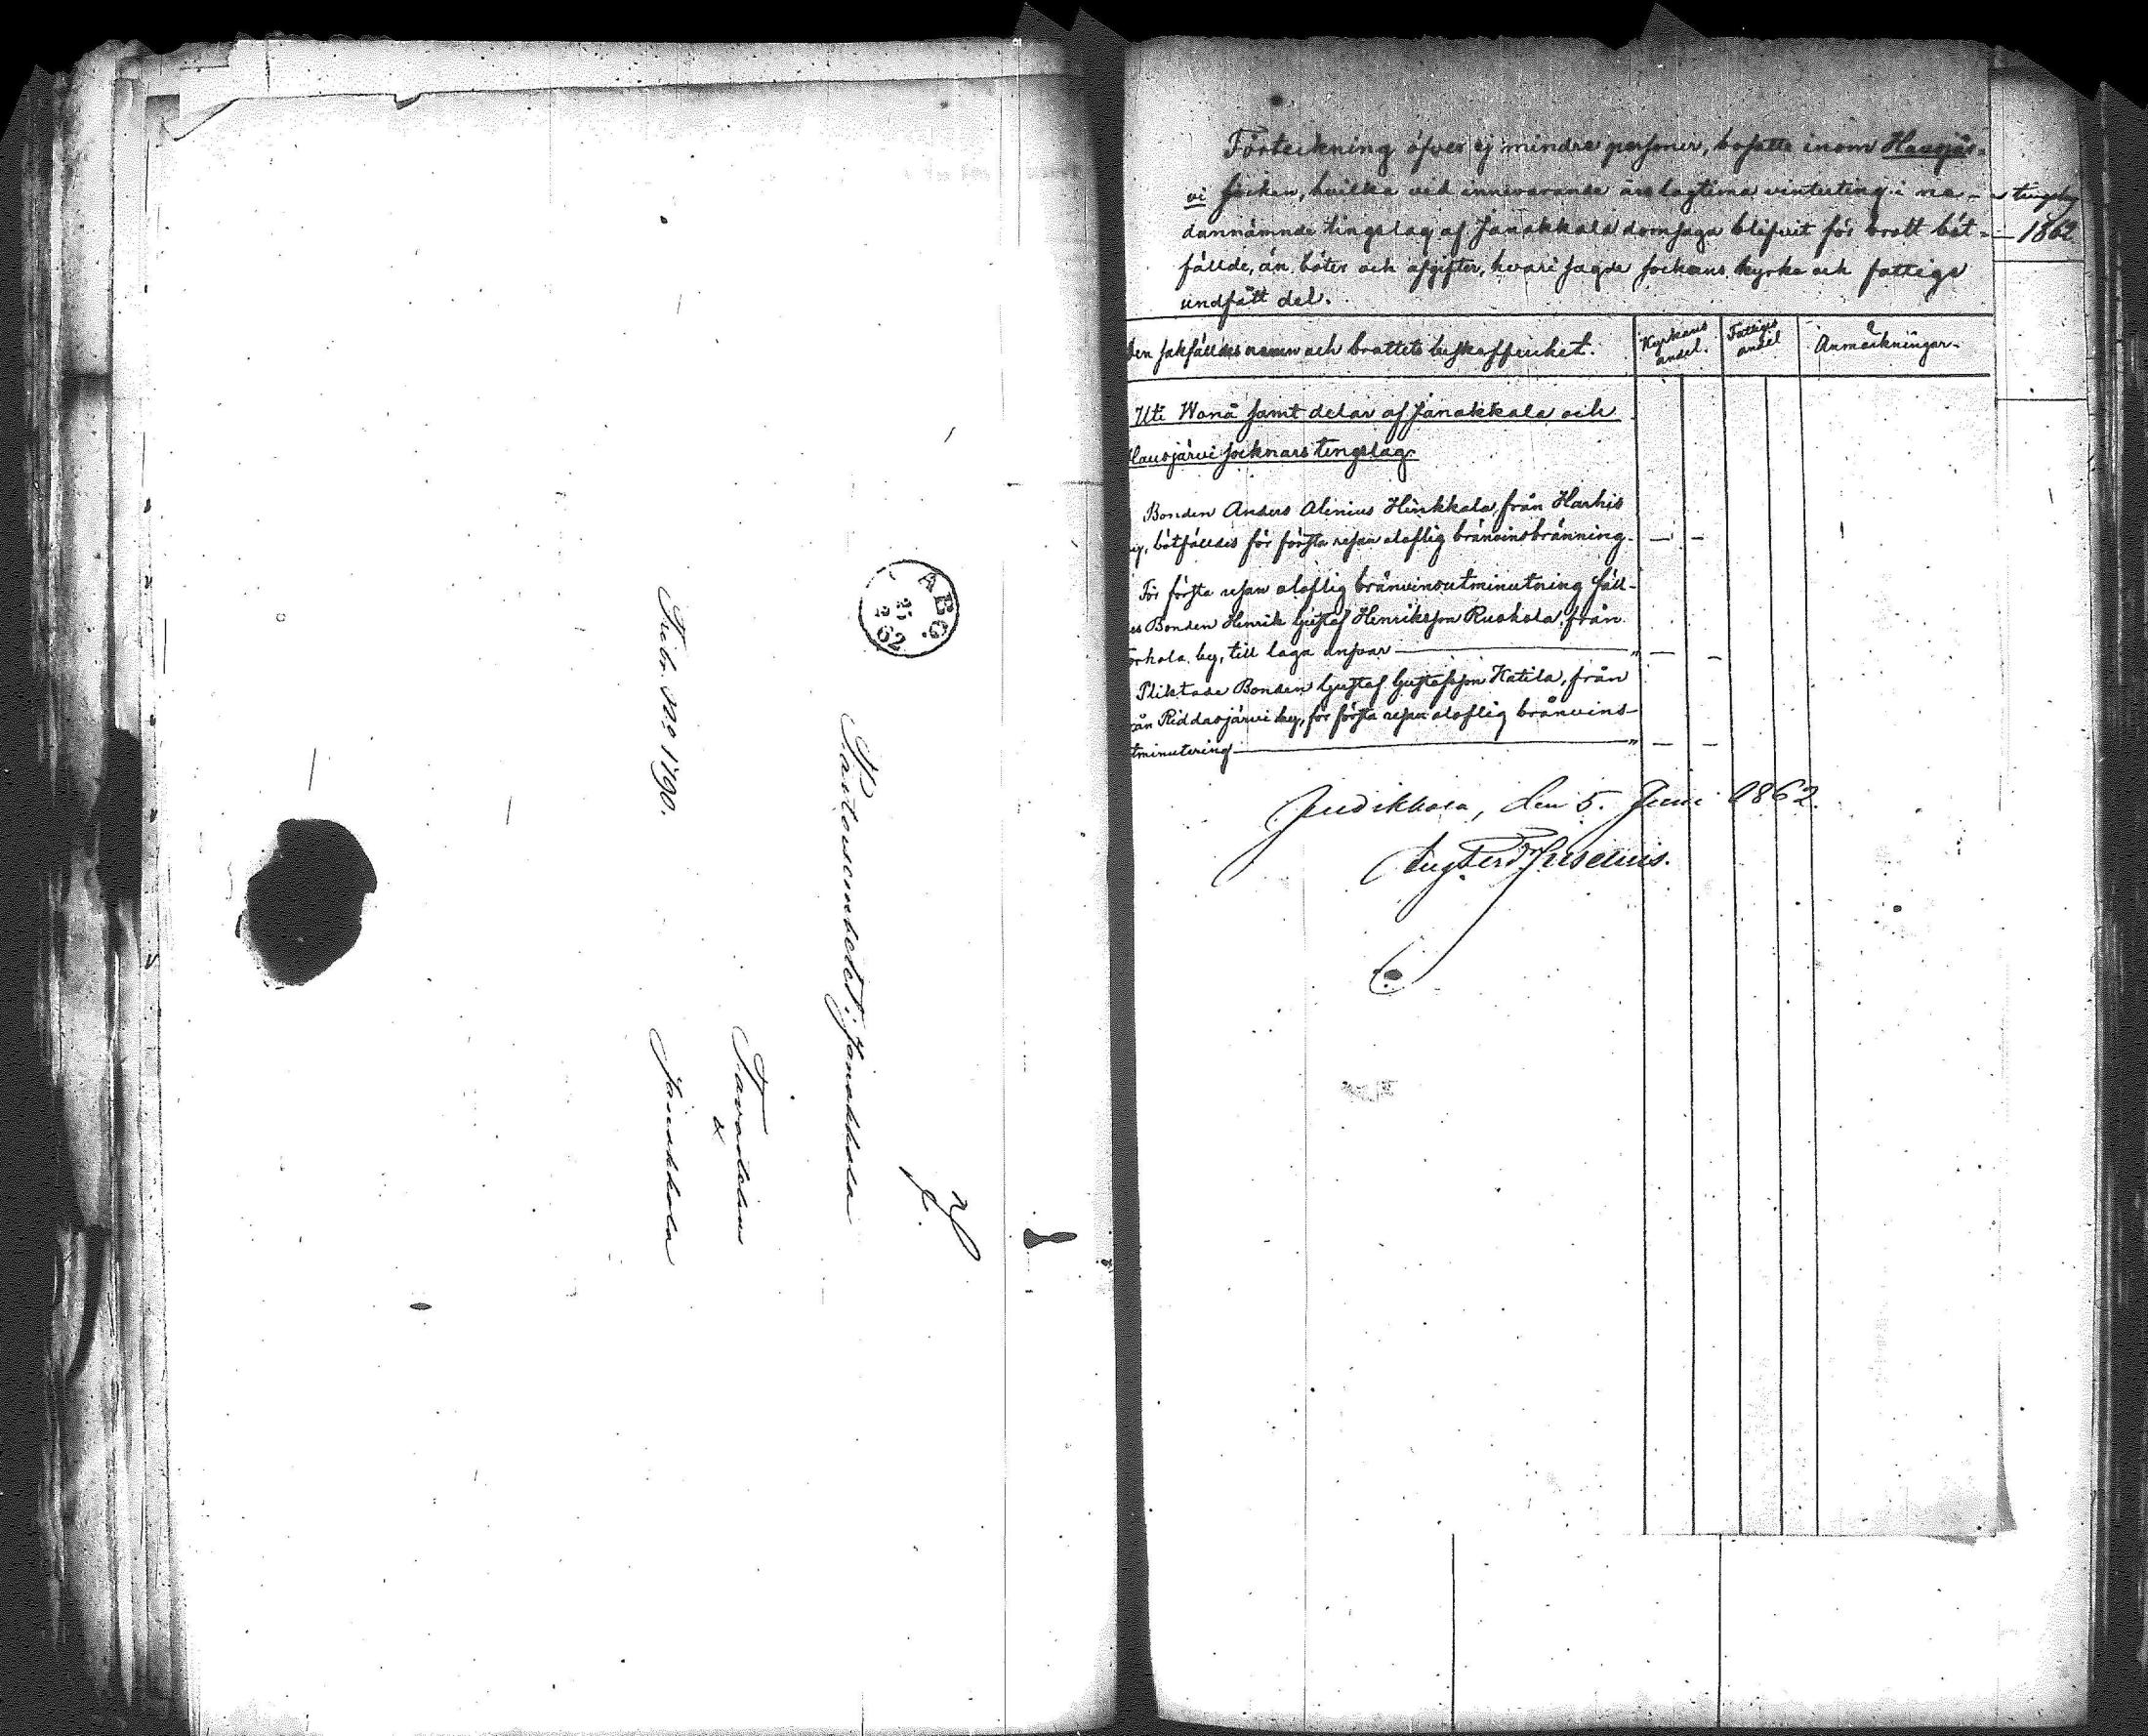 ÅBO.
62
Pastorsembetet i Janakkala
Tavastehus
&
Janakkala
Fribr. No 1190.
Förteckning öfver ej mindre personer, bosatte inom Hausjär-
vi socken, hvilka vid innevarande års lagtima vinterting i ne-
dannämnde tingslag af Janakkala domsaga blifvit för brott böt-
fällde, än böter och afgifter, hvari sagde sockens kyrka och fattige
undfått del.
1862
Den sakfälldes namn och brottets beskaffenhet.
Kyrkans andel.
Fattiges andel
Anmärkningar.
Uti Wanå samt delar af Janakkala och
Hausjärvi socknars tingslag.
Bonden Anders Alenius Hinkkala, från Harhis
by, bötfälldes för första resan olaflig bränvinsbränning. — –
För första resan olaflig bränvinsutminutering fäll-
es Bonden Henrik Gustaf Henriksson Ruokola, från
orhola by, till laga ansvar — " — –
Pliktade Bonden Gustaf Gustafsson Katila, från
rån Riddasjärvi by, för första resan olaflig bränvins-
tminutering — " — –
Judikkala, den 5. Juni 1862.